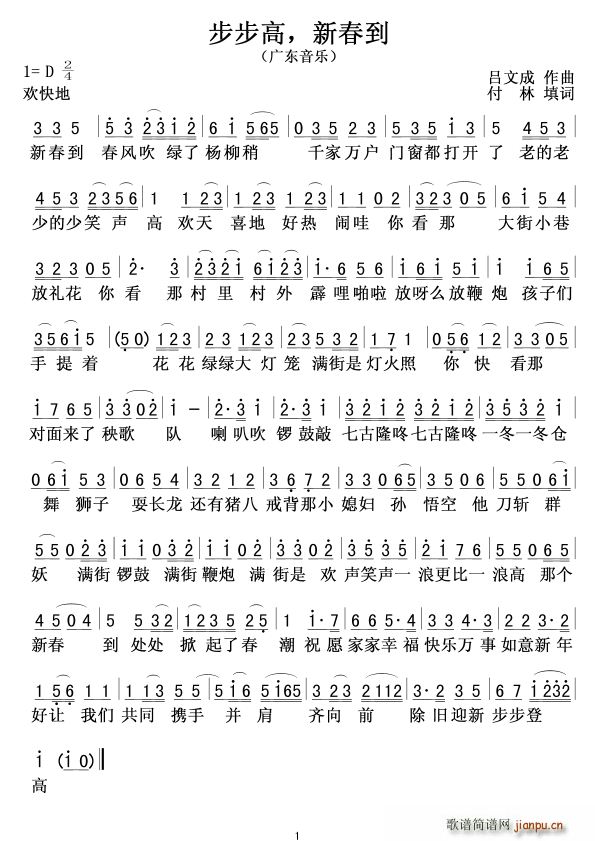 步步高，新春到
（广东音乐）
1= D 2/4
吕文成 作曲
欢快地
付 林 填词
3 3 5 | 5 3 2 3 1 2 | 6 1 5 6 5 | 0 3 5 2 3 | 5 5 3 5 1 3 | 5 4 5 3 |
新春到 春风吹 绿了杨柳稍 千家万户 门窗都打开了 老的老
4 5 3 2 3 5 6 | 1 1 2 3 5 | 1 7 6 5 | 3 5 1 3 | 2 0 2 3 | 6 1 5 4 |
少的少笑声高 欢天喜地好热 闹哇你看那 大街小巷
3 2 3 0 5 | 2· 3 | 2 3 2 1 6 1 2 3 | 1· 6 5 6 | 5 5 0 5 1 | 1 0 6 5 |
放礼花 你看 那村里村外 霹哩啪啦 放呀么放鞭炮 孩子们
3 5 6 1 5 | (5) 0 1 2 3 | 1 2 3 1 2 3 | 2 3 5 3 2 | 1 7 1 | 0 5 6 1 2 | 1 2 3 |
手提着 花花绿绿大灯笼 满街是灯火照 你快看那
1 7 6 5 | 3 3 0 2 | 1 － | 2· 3 1 | 2· 3 1 | 3 2 1 2 3 2 1 2 | 3 5 3 2 1 |
对面来了秧歌 队 喇叭吹 锣鼓敲 七古隆咚七古隆咚一冬一冬仓
0 6 1 5 3 | 0 6 5 4 | 5 1 2 1 | 3 6 7 2 | 3 4 3 5 | 6 5 0 5 | 4 5 3 2 1 |
舞狮子 耍长龙 还有猪八 戒背那小媳妇 孙 悟空他刀斩群
5 5 0 2 3 | 1 1 0 3 | 2 2 0 2 3 | 5 5 3 5 3 | 2· 1 7 6 | 5 5 0 6 5 |
妖 满街锣鼓 满街鞭炮 满街是欢声笑声一浪更比一浪高 那个
4 5 0 4 | 5 5 3 2 | 1 2 3 5 | 2 3 2 5 | 1· 7 | 6 6 5· 4 | 3 3 4· 3 | 2 3 1 7 |
新春 到 处处 掀起了春 潮祝愿家家幸福快乐万事如意新年
1 5 6 | 1 1 | 1 2 3 2 3 5 | 5 1 6 5 1 6 5 | 3 4 2 1 1 2 | 3· 2 3 5 | 6 7 1 2 3 2 |
好让 我们共同携手并肩 齐向前 除旧迎新步步登
1 (1 0) ‖
高
1
歌谱简谱网
jianpu.cn